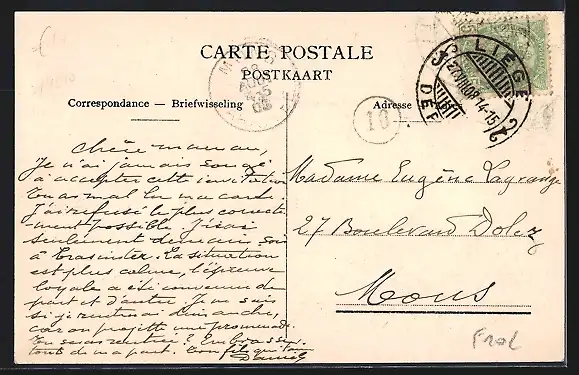 CARTE POSTALE
POSTKAART
Correspondance — Briefwisseling
Adresse
LIÈGE
DÉP
MONS
10
Chère maman,
Je n'ai jamais songé
à accepter cette invitation
Tu as mal lu ma carte.
J'ai refusé le plus correcte-
ment possible. J'irai
seulement demain soir
à
La situation
est plus calme, l'épreuve
loyale a été convenue de
part et d'autre. Je ne sais
si je rentrerai dimanche,
car on projette une promenade.
Tu es as rentrée? Embrasse
tout de ma part. Ton fils qui t'aime
Daniel
Madame Eugène Lagrange
27 Boulevard Dolez
Mons